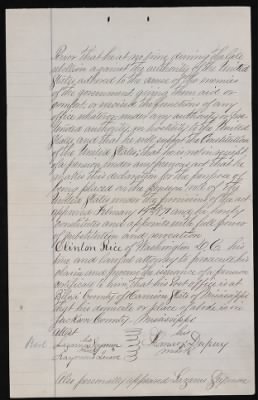 Never that he at no time during the late
rebellion against the authority of the United
States, adhered to the cause of the enemies
of the government giving them aid or
comfort, or exercised the functions of any
office whatever under any authority or pre
tended authority, in hostility to the United
States, and that he will support the Constitution
of the United States, that he is not in receipt
of a pension under any previous act that he
makes this declaration for the purpose of
being placed on the pension roll of the
United States under the provisions of the act
approved February 14th 1871 and he hereby
constitutes and appoints with full power
of substitution and revocation
Clinton Rice of Washington D.C. his
true and lawful attorney to prosecute his
claim and procure the issuance of a pension
certificate to him, that his Post Office is at
Biloxi County of Harrison State of Mississippi
that his domicile or place of abode is in
Jackson County Mississippi
Attest
his
his
mark
mark
Also personally appeared